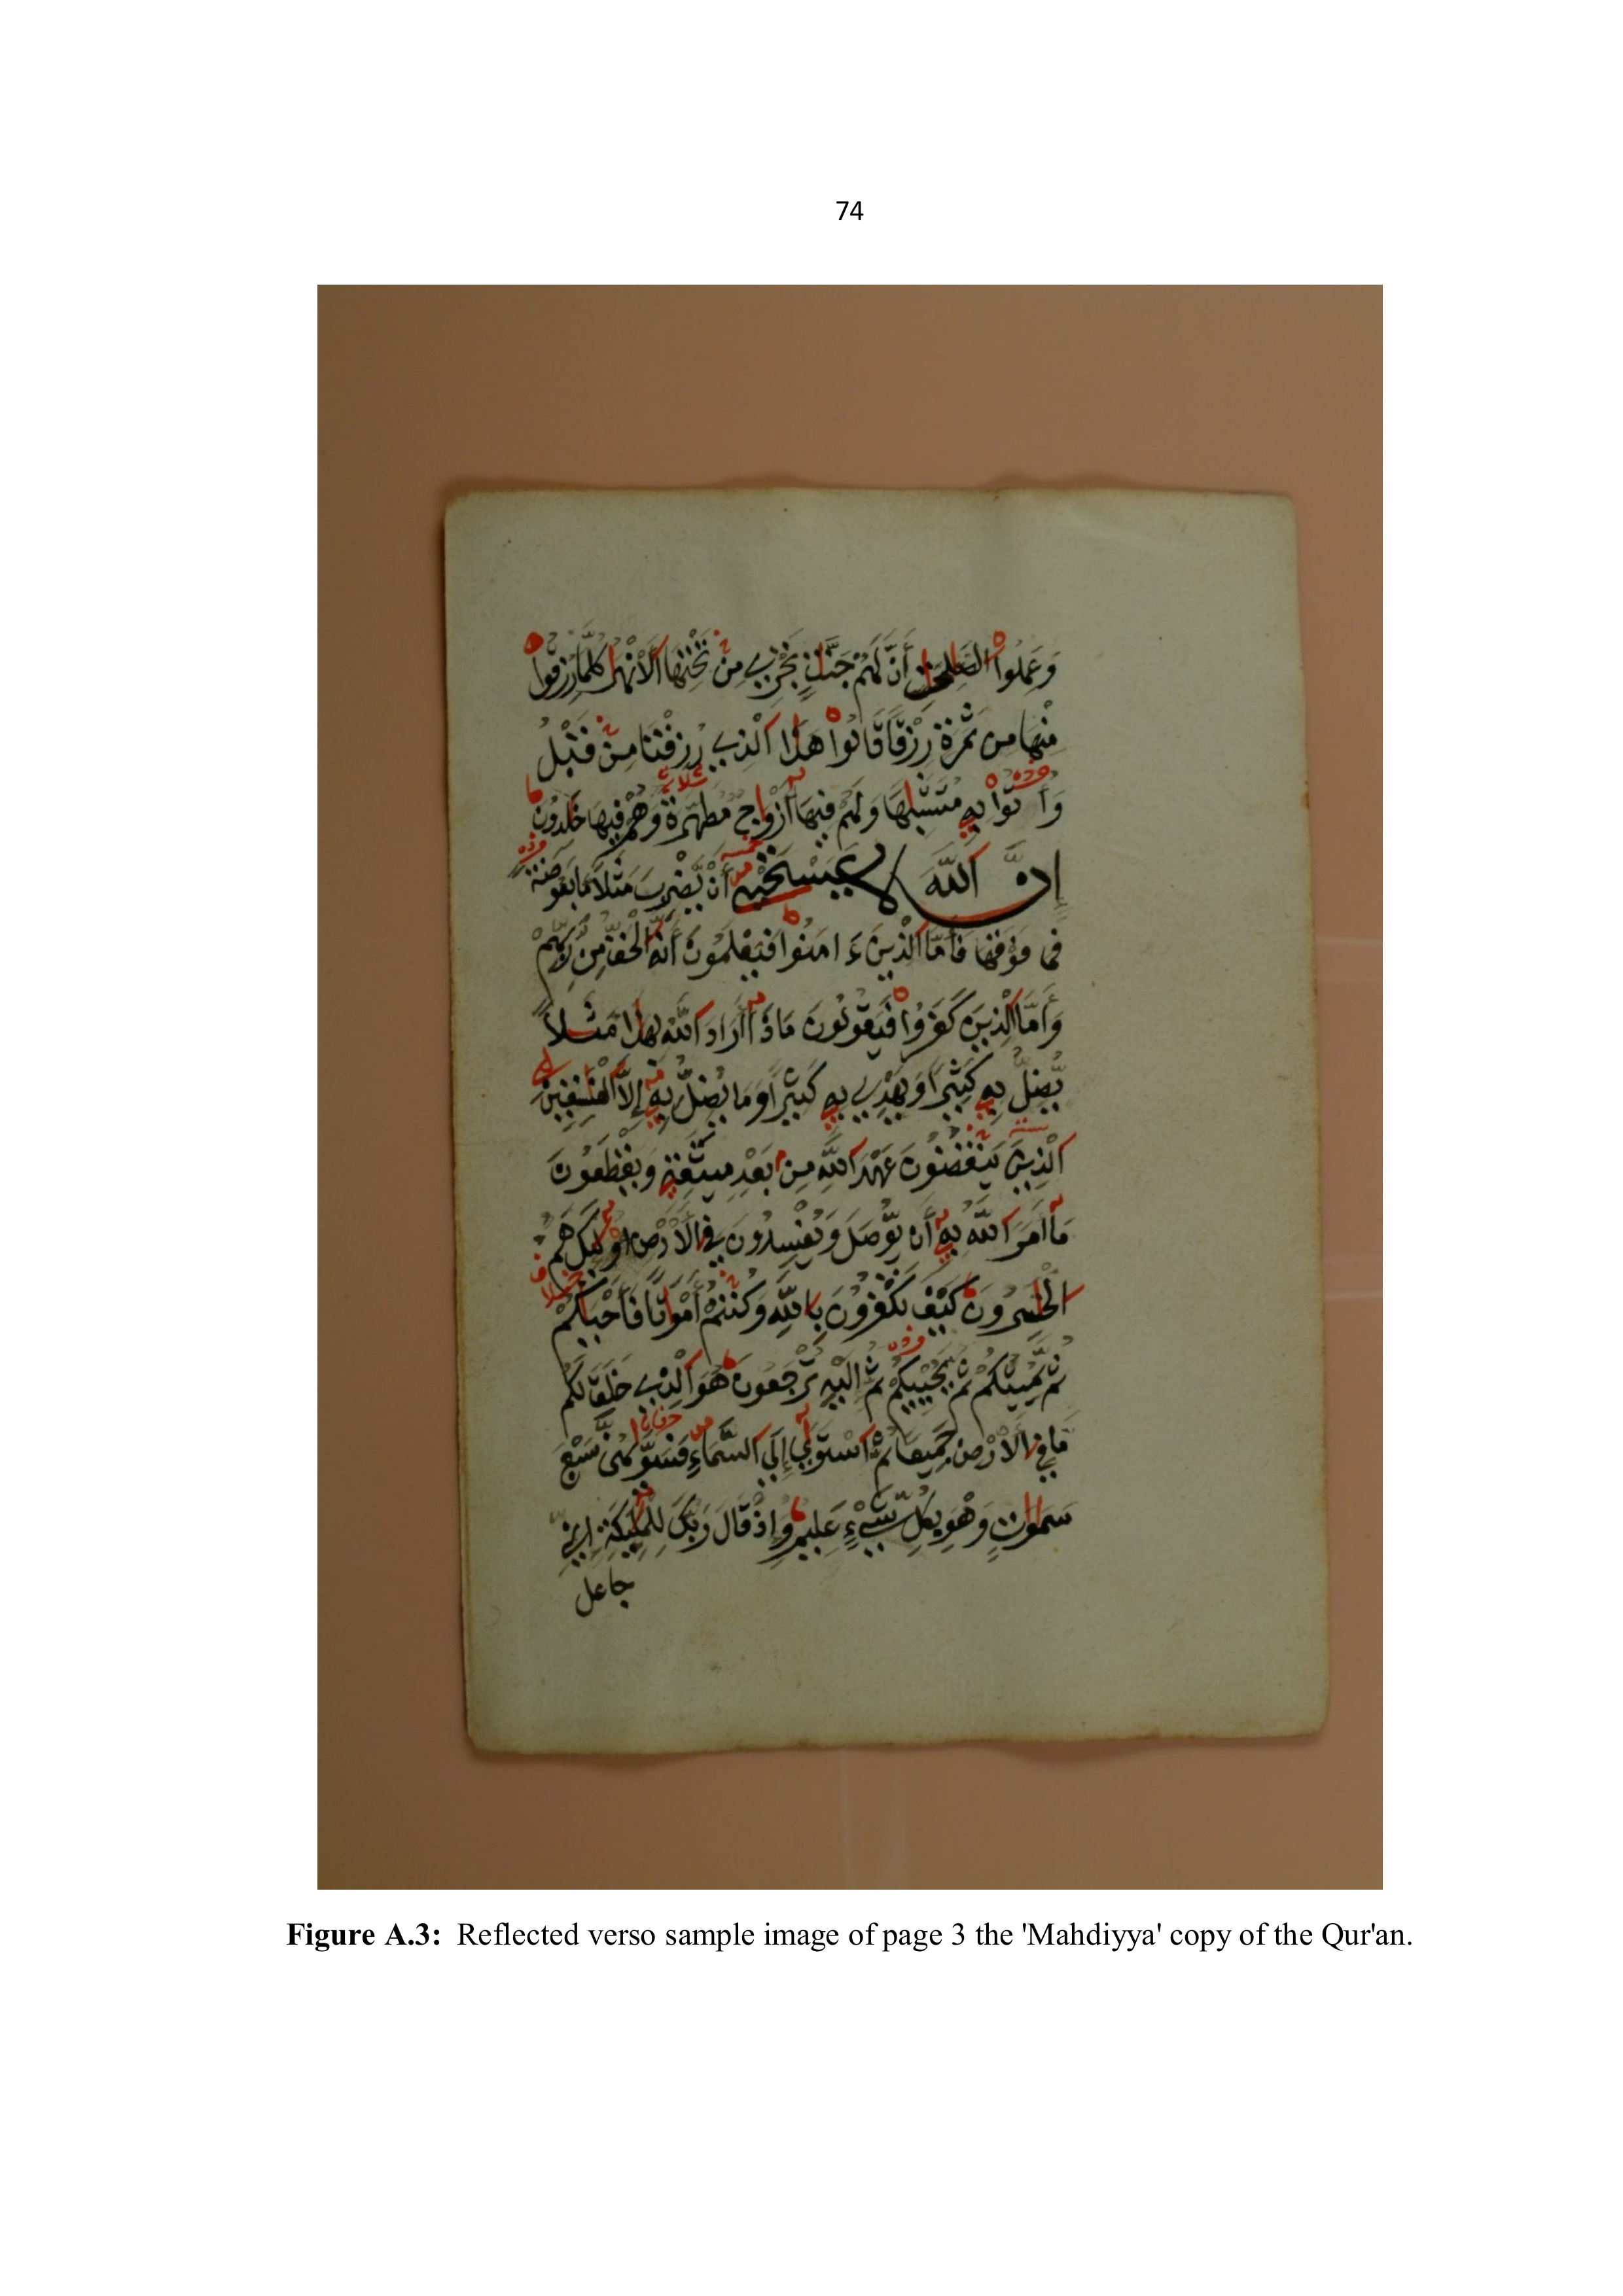 74
وَعَمِلُوا۟ الصَّٰلِحَٰتِ أَنَّ لَهُمْ جَنَّٰتٍ تَجْرِے مِن تَحْتِهَا اَ۬لَانْهَٰرُ كُلَّمَا رُزِقُوا۟
مِنْهَا مِن ثَمَرَةٖ رِّزْقاٗ قَالُوا۟ هَٰذَا اَ۬لذِے رُزِقْنَا مِن قَبْلُ
وَأُتُوا۟ بِهِۦ مُتَشَٰبِهاٗ وَلَهُمْ فِيهَآ أَزْوَٰجٞ مُّطَهَّرَةٞ وَهُمْ فِيهَا خَٰلِدُونَ
إِنَّ اَ۬للَّهَ لَا يَسْتَحْيِۦٓ أَنْ يَّضْرِبَ مَثَلاٗ مَّا بَعُوضَةٗ
فَمَا فَوْقَهَا فَأَمَّا اَ۬لذِينَ ءَامَنُوا۟ فَيَعْلَمُونَ أَنَّهُ اُ۬لْحَقُّ مِن رَّبِّهِمْ
وَأَمَّا اَ۬لذِينَ كَفَرُوا۟ فَيَقُولُونَ مَاذَآ أَرَادَ اَ۬للَّهُ بِهَٰذَا مَثَلاٗ
يُضِلُّ بِهِۦ كَثِيراٗ وَيَهْدِے بِهِۦ كَثِيراٗ وَمَا يُضِلُّ بِهِۦٓ إِلَّا اَ۬لْفَٰسِقِينَ
اَ۬لذِينَ يَنقُضُونَ عَهْدَ اَ۬للَّهِ مِنۢ بَعْدِ مِيثَٰقِهِۦ وَيَقْطَعُونَ
مَآ أَمَرَ اَ۬للَّهُ بِهِۦٓ أَنْ يُّوصَلَ وَيُفْسِدُونَ فِے اِ۬لَارْضِ أُو۟لَٰٓئِكَ هُمُ
اُ۬لْخَٰسِرُونَ كَيْفَ تَكْفُرُونَ بِاللَّهِ وَكُنتُمْ أَمْوَٰتاٗ فَأَحْيَٰكُمْ
ثُمَّ يُمِيتُكُمْ ثُمَّ يُحْيِيكُمْ ثُمَّ إِلَيْهِ تُرْجَعُونَ هُوَ اَ۬لذِے خَلَقَ لَكُم
مَّا فِے اِ۬لَارْضِ جَمِيعاٗ ثُمَّ اَ۪سْتَوَىٰٓ إِلَى اَ۬لسَّمَآءِ فَسَوَّىٰهُنَّ سَبْعَ
سَمَٰوَٰتٖ وَهْوَ بِكُلِّ شَےْءٍ عَلِيمٞ وَإِذْ قَالَ رَبُّكَ لِلْمَلَٰٓئِكَةِ إِنِّے
جاعل
Figure A.3: Reflected verso sample image of page 3 the 'Mahdiyya' copy of the Qur'an.